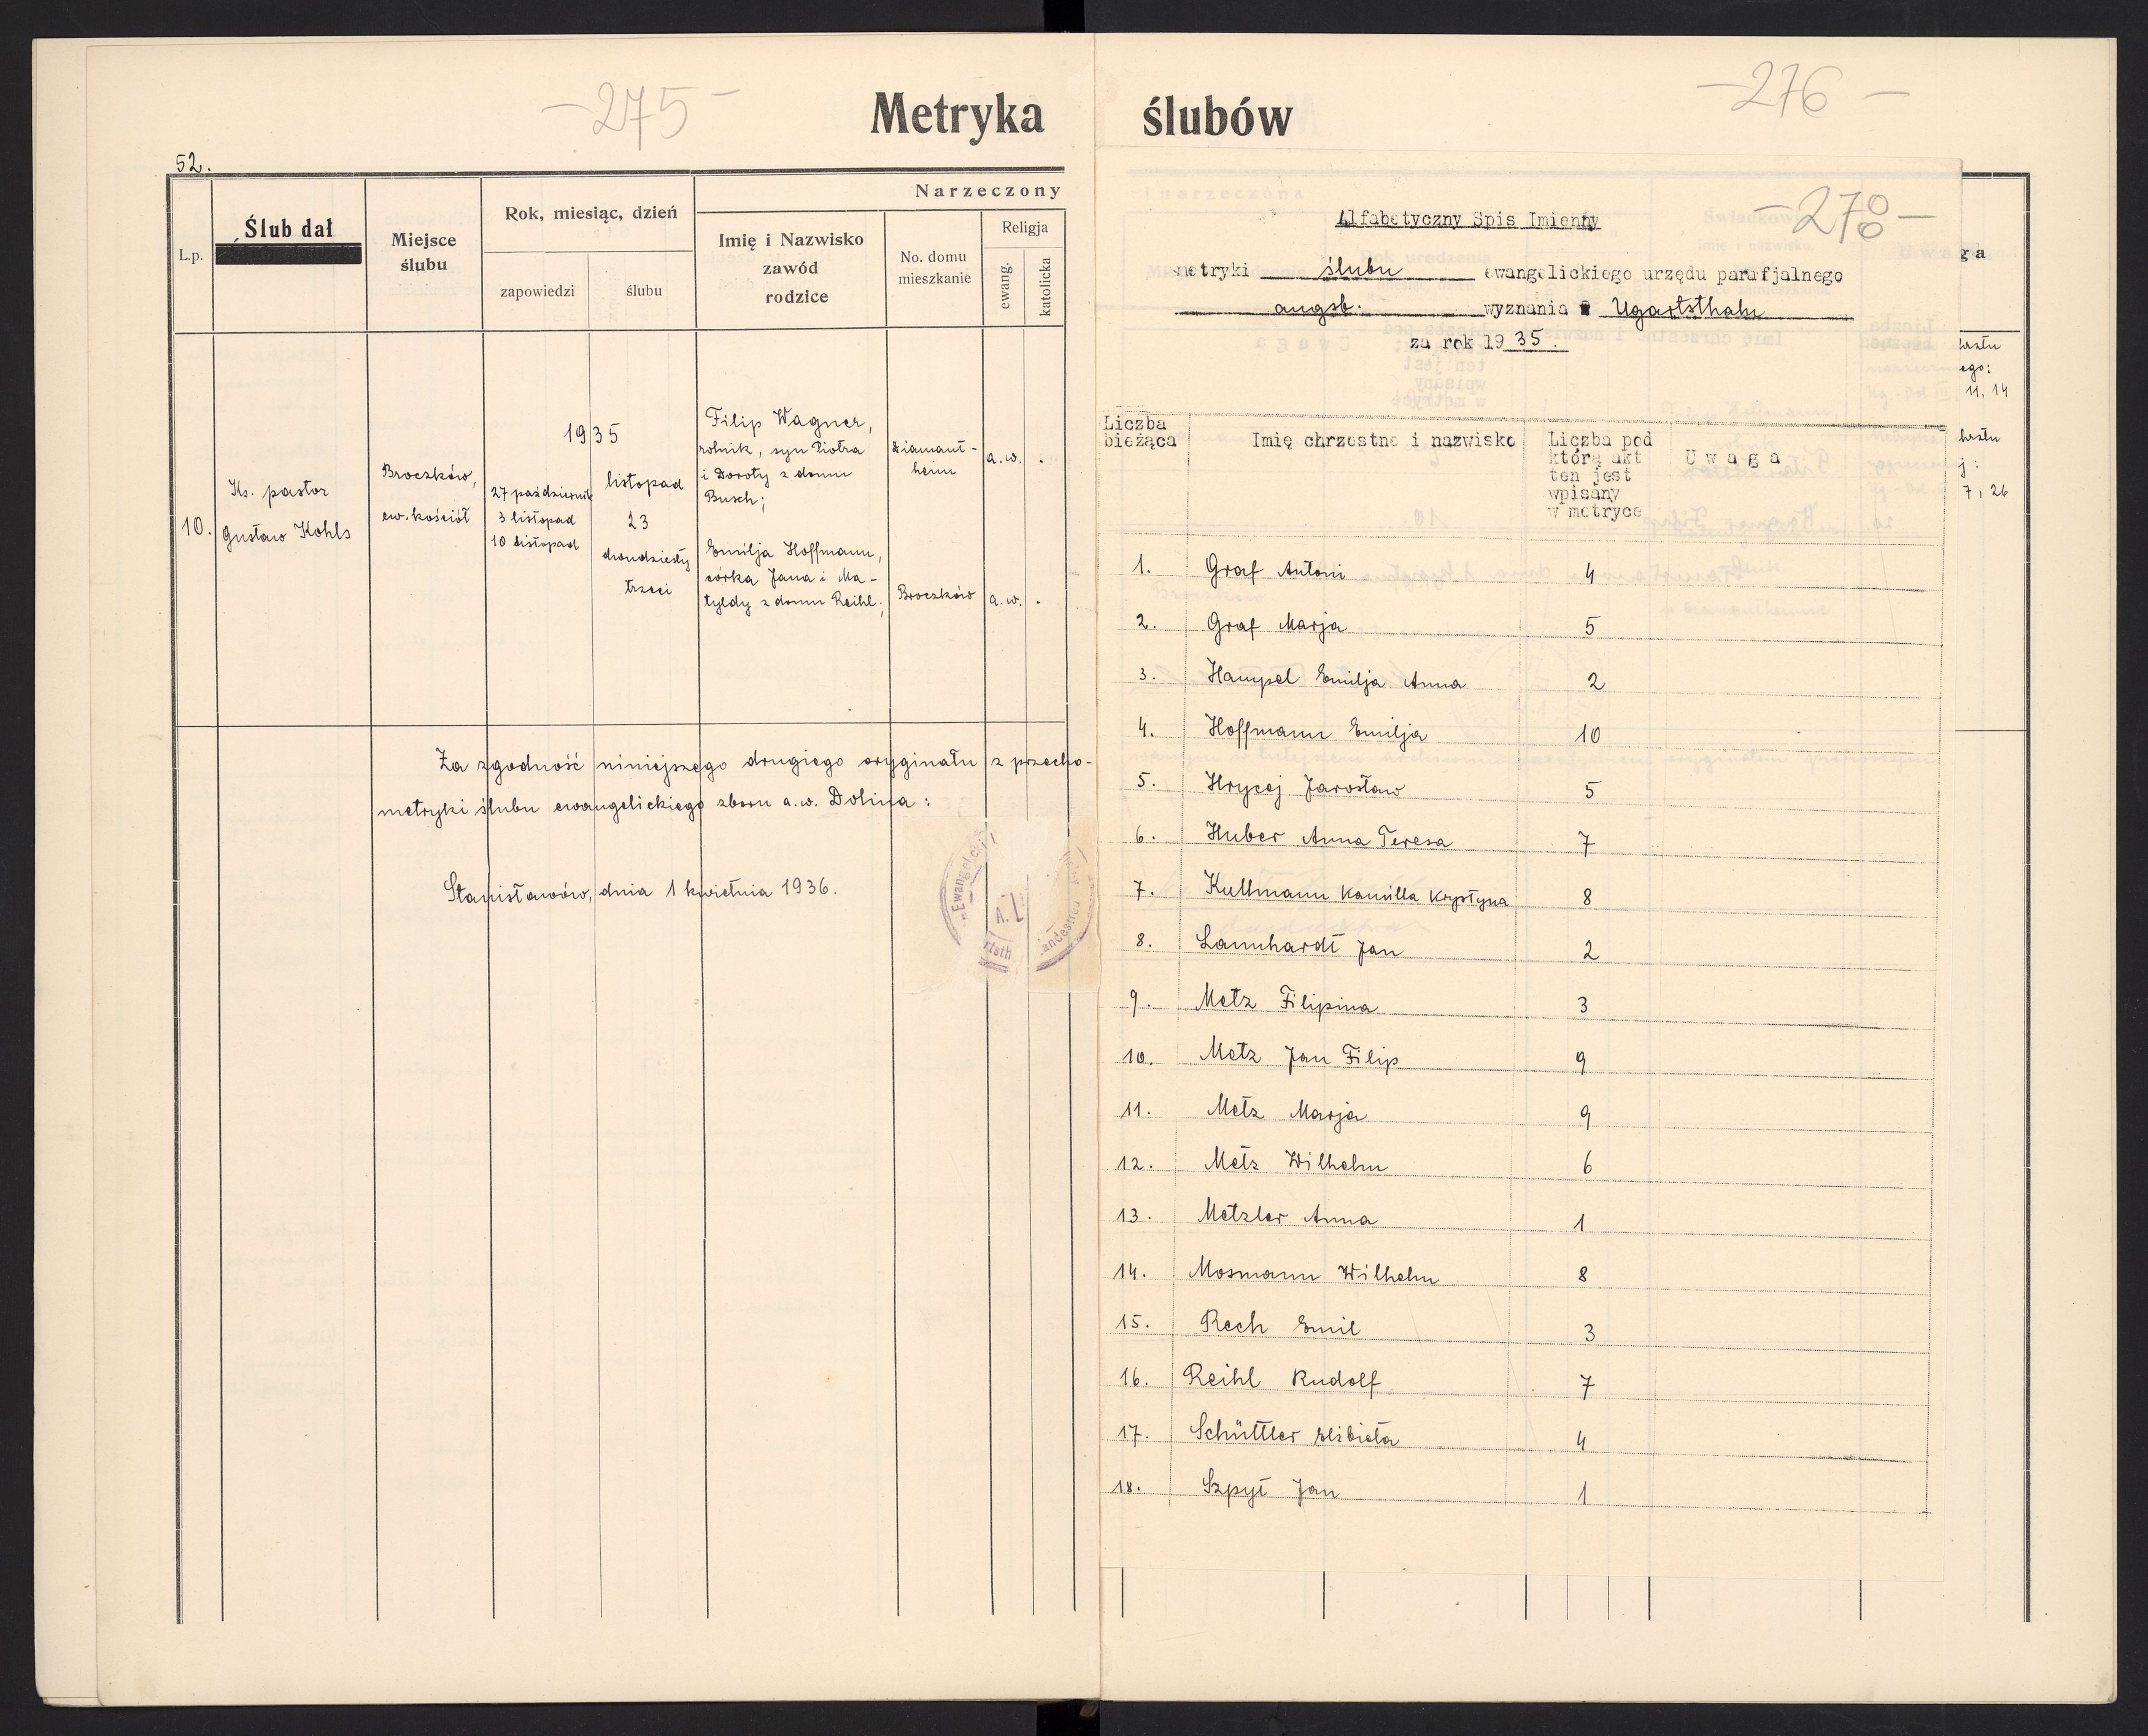 -275-
Metryka
52.
Narzeczony
L.p.
Ślub dał
Miejsce
ślubu
Rok, miesiąc, dzień
zapowiedzi
ślubu
Imię i Nazwisko
zawód
rodzice
No. domu
mieszkanie
Religja
ewang.
katolicka
10.
Ks. pastor
Gustaw Kohls
Broczków,
ew. kościół
1935
27 październik
3 listopad
10 listopad
listopad
23
dwudziesty
trzeci
Filip Wagner,
rolnik, syn Piotra
i Doroty z domu
Busch;
Diamant-
heim
a.w. .
Emilja Hoffmann,
córka Jana i Ma-
tyldy z domu Reihl;
Broczków
a.w. .
Za zgodność niniejszego drugiego oryginału z przecho-
metryki ślubu ewangelickiego zboru a.w. Dolina:
Stanisławów, dnia 1 kwietnia 1936.
-276-
ślubów
-278-
Alfabetyczny Spis Imienny
metryki ślubu ewangelickiego urzędu parafjalnego
augsb. wyznania Ugartsthalu
za rok 1935.
Liczba
bieżąca
Imię chrzestne i nazwisko
Liczba pod
którą akt
ten jest
wpisany
w metryce
Uwaga
1. Graf Antoni 4
2. Graf Marja 5
3. Hampel Emilja Anna 2
4. Hoffmann Emilja 10
5. Hrycej Jarosław 5
6. Huber Anna Teresa 7
7. Kullmann Kamilla Krystyna 8
8. Lannhardt Jan 2
9. Metz Filipina 3
10. Metz Jan Filip 9
11. Metz Marja 9
12. Metz Wilhelm 6
13. Metzler Anna 1
14. Mosmann Wilhelm 8
15. Rech Emil 3
16. Reihl Rudolf 7
17. Schüttler Elżbieta 4
18. Szpyt Jan 1
ga
ego:
11, 14
j:
7, 26